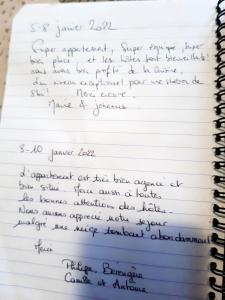 5-8 janvier 2022
Super appartement, Super équipé, super
bien placé, et les hôtes sont bienveillants!
nous avons bien profité de la cuisine,
d'un niveau exceptionnel pour une station de
ski! Merci encore.
Marie & Johannes
8-10 janvier 2022
L'appartement est très bien agencé et
bien situé. Merci aussi à toutes
les bonnes attentions des hôtes.
Nous avons apprécié notre séjour
malgré une neige tombant abondamment
Merci
Philippe, Bérengère
Camille et Antoine